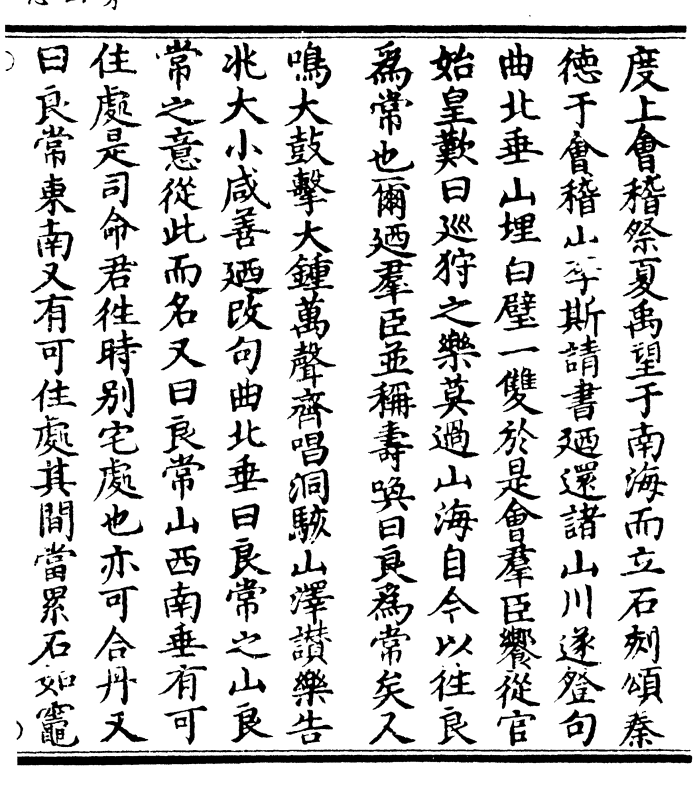 度上會稽祭夏禹望于南海而立石刻頌秦
德于會稽山李斯請書廼還諸山川遂登句
曲北垂山埋白璧一雙於是會羣臣饗從官
始皇歎曰廵狩之樂莫過山海自今以往良
爲常也爾廼羣臣並稱壽喚曰良爲常矣又
鳴大鼓擊大鍾萬聲齊唱洞駭山澤讃樂告
兆大小咸善廼改句曲北垂曰良常之山良
常之意從此而名又曰良常山西南垂有可
住處是司命君往時別宅處也亦可合丹又
曰良常東南又有可住處其間當累石如竈